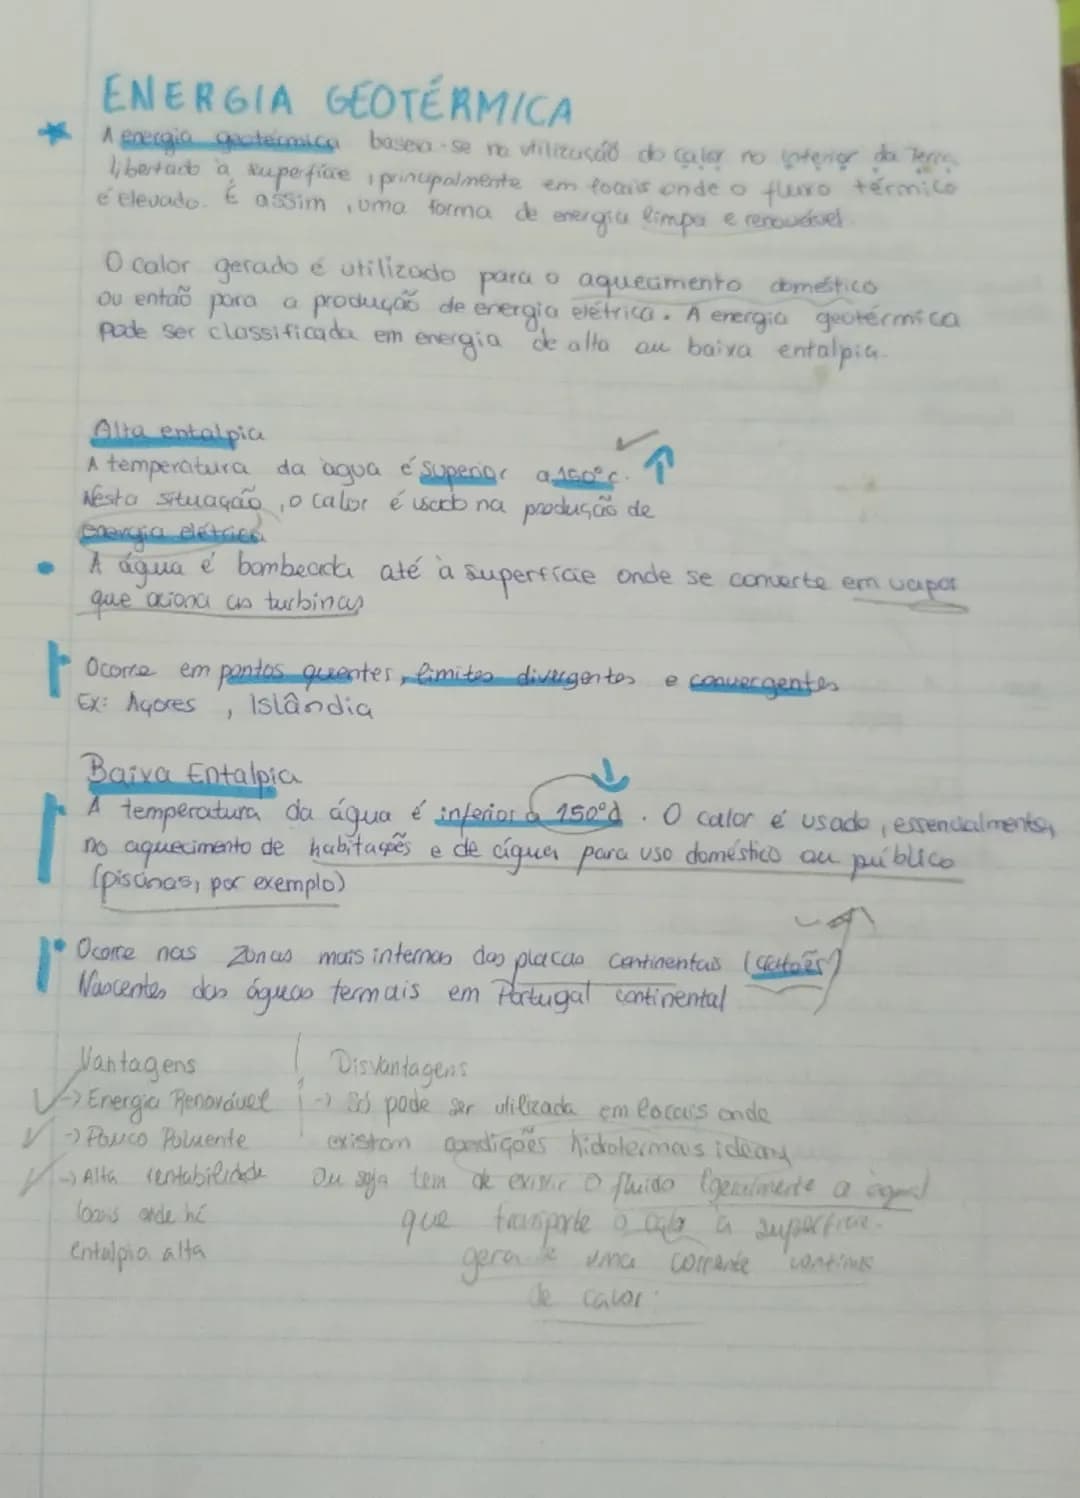 ENERGIA GEOTÉRMICA
A energia geotérmica baseia-se na utilização do calor no interior da Terra,
libertado à superfície, principalmente em locais onde o fluxo térmico
é elevado. É assim, uma forma de energia limpa e renovável.
O calor gerado é utilizado para o aquecimento doméstico
ou então para a produção de energia elétrica. A energia geotérmica
pode ser classificada em energia de alta ou baixa entalpia.
Alta entalpia
A temperatura da água é superior a 150°C.
Nesta situação, o calor é usado na produção de
energia elétrica
A água é bombeada até à superfície onde se converte em vapor
que aciona as turbinas
Ocorre em pontos quentes, limites divergentes e convergentes
Ex: Açores, Islândia
Baixa Entalpia
A temperatura da água é inferior a 150°C. O calor é usado, essencialmente,
no aquecimento de habitações e de água para uso doméstico ou público
(piscinas, por exemplo)
Ocorre nas zonas mais internas das placas continentais (cratões)
Nascentes das águas termais em Portugal continental
Vantagens
→ Energia Renovável
→ Pouco Poluente
→ Alta rentabilidade
locais onde há
entalpia alta
Disvantagens
→ Só pode ser utilizada em locais onde
existam condições hidrotermais ideais
Ou seja tem de existir o fluido (geralmente a água)
que transporte o calor à superfície.
gera-se uma corrente
de calor.